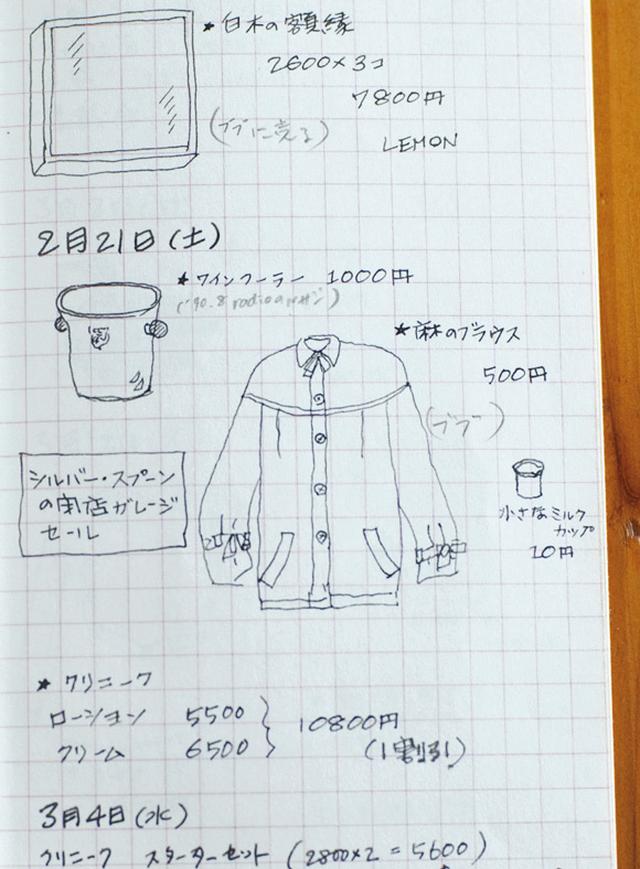 ★白木の額縁
2600×3コ
7800円
(ブブに売る)
LEMON
2月21日(土)
★ワインクーラー 1000円
★麻のブラウス
500円
(ブブ)
シルバー・スプーン
の閉店ガレージ
セール
小さなミルク
カップ
10円
★クリニーク
ローション 5500
クリーム 6500
10800円
(1割引)
3月4日(水)
クリニーク スターターセット (2800×2=5600)